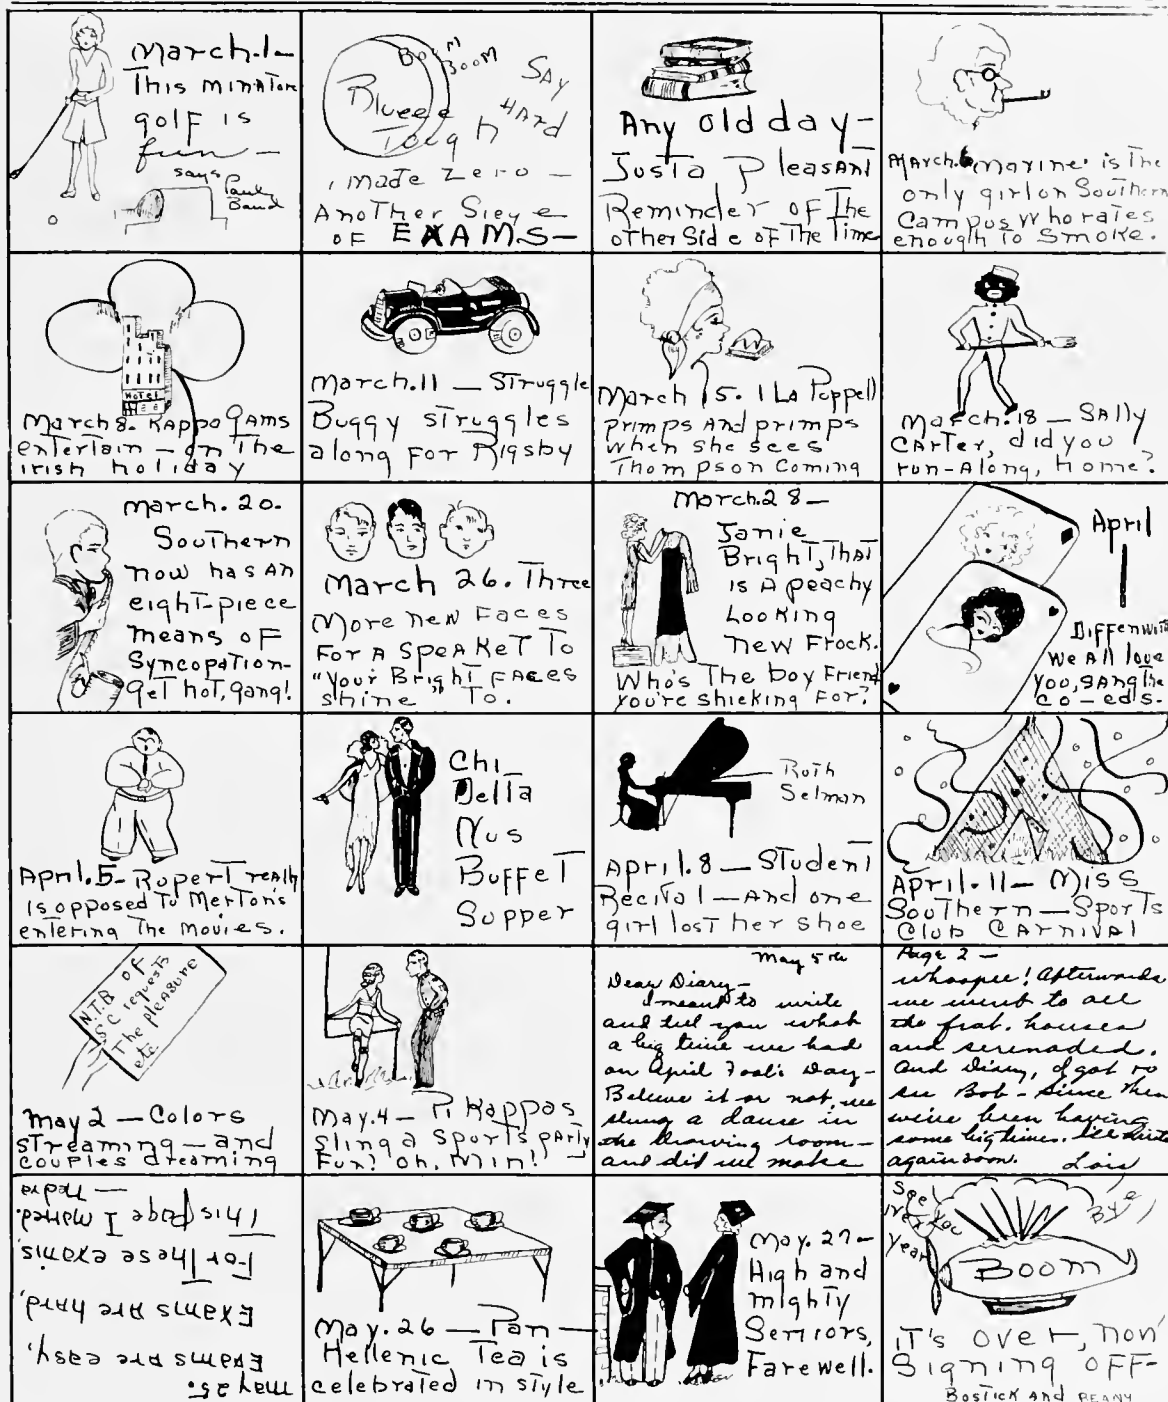 March.1-
This minature
golf is
fun —
says
Paul
Baud
BOOM
BOOM
SAY
HARD
Bluee
Tough
I made zero —
Another Siege
of EXAMS—
Any old day—
Justa Pleasant
Reminder of The
other Side of The Time
March.6 marine. is The
only girl on Southern
Campus Who rates
enough To Smoke.
HOTEL
March 8. Kappa Gams
entertain — on The
irish holiday
March.11 — Struggle
Buggy struggles
along for Rigsby
March 15. I La Puppell
primps And primps
when she sees
Thompson Coming
March.18 — SAlly
CArter, did you
run-Along, home?
March. 20.
Southern
now has AN
eight-piece
means of
Syncopation-
get hot, gang!
March 26. Three
More new Faces
For A SpeakeT To
"your Bright Faces
shine" To.
March.28 —
Janie
Bright, That
is A peachy
Looking
new Frock.
Who's The boy Friend
you're shieking For?
April
1
Diffenwirth
We All love
You, sang the
Co-eds.
April.5- RuperT really
Is opposed To Merton's
entering The movies.
Chi
Delta
Nus
BuffeT
Supper
Ruth
Selman
April.8 — STudenT
Recital — And one
girl lost her shoe
April.11 — Miss
Southern — Sports
Club CArnival
N.T.B OF
SC requests
The pleasure
etc
may 2 — Colors
streaming — and
couples dreaming
May.4 — Pi Kappas
sling a sports party
Fun? Oh, Min!
May 5th
Dear Diary—
I meant to write
and tell you what
a big time we had
on April Fool's Day—
Believe it or not, we
slung a dance in
the drawing room—
and did we make
Page 2 —
whoopee! Afterwards
we went to all
the frat. houses
and serenaded.
And Diary, I got to
see Bob - Since then
we've been having
some big time. I'll write
again soon. Lois
may 25.
Exams are easy,
Exams are hard,
For These exams,
This page I marred.
May.26 — Pan —
Hellenic Tea is
celebrated in style
May.27-
High and
mighty
Seniors,
Farewell.
See you
next
year
Bye
Boom
iT's over, now
Signing OFF-
Bostick And BEANY